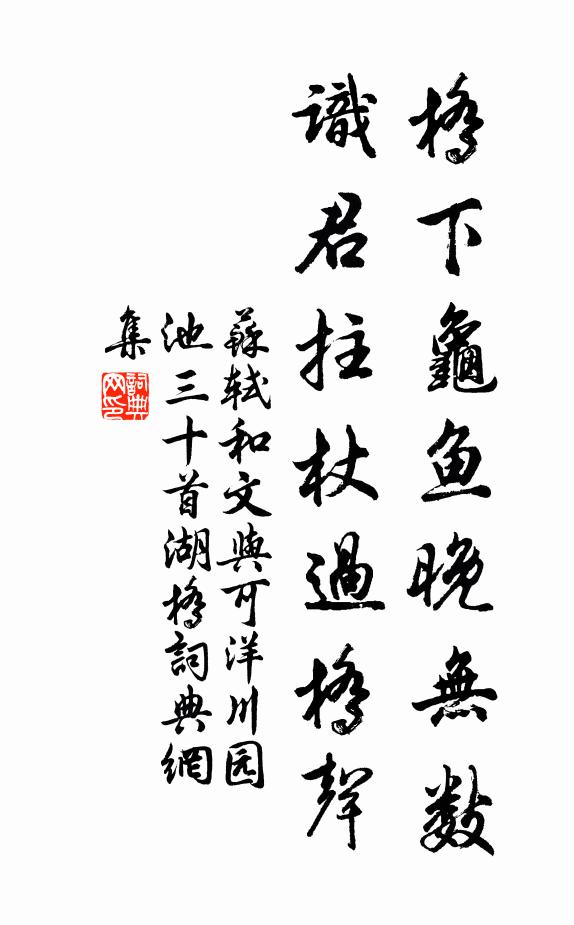 橋下龜鱼晚無數
識君拄杖過橋聲
蘇軾和文與可洋川园
池三十首湖橋詞典網
集
詞典网印